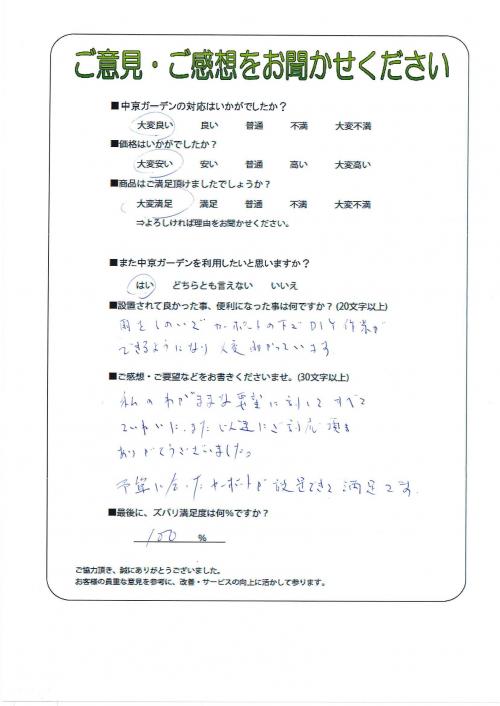 ご意見・ご感想をお聞かせください
■中京ガーデンの対応はいかがでしたか？
大変良い 良い 普通 不満 大変不満
■価格はいかがでしたか？
大変安い 安い 普通 高い 大変高い
■商品はご満足頂けましたでしょうか？
大変満足 満足 普通 不満 大変不満
⇒よろしければ理由をお聞かせください。
■また中京ガーデンを利用したいと思いますか？
はい どちらとも言えない いいえ
■設置されて良かった事、便利になった事は何ですか？(20文字以上)
雨をしのいで カーポートの下で DIY作業が
できるようになり 大変助かっています
■ご感想・ご要望などをお書きくださいませ。(30文字以上)
私のわがままな要望に対して すべて
ていねいに、また じん速にご対応頂き
ありがとうございました。
予算に合ったカーポートが設置できて満足です。
■最後に、ズバリ満足度は何％ですか？
100 ％
ご協力頂き、誠にありがとうございました。
お客様の貴重な意見を参考に、改善・サービスの向上に活かして参ります。